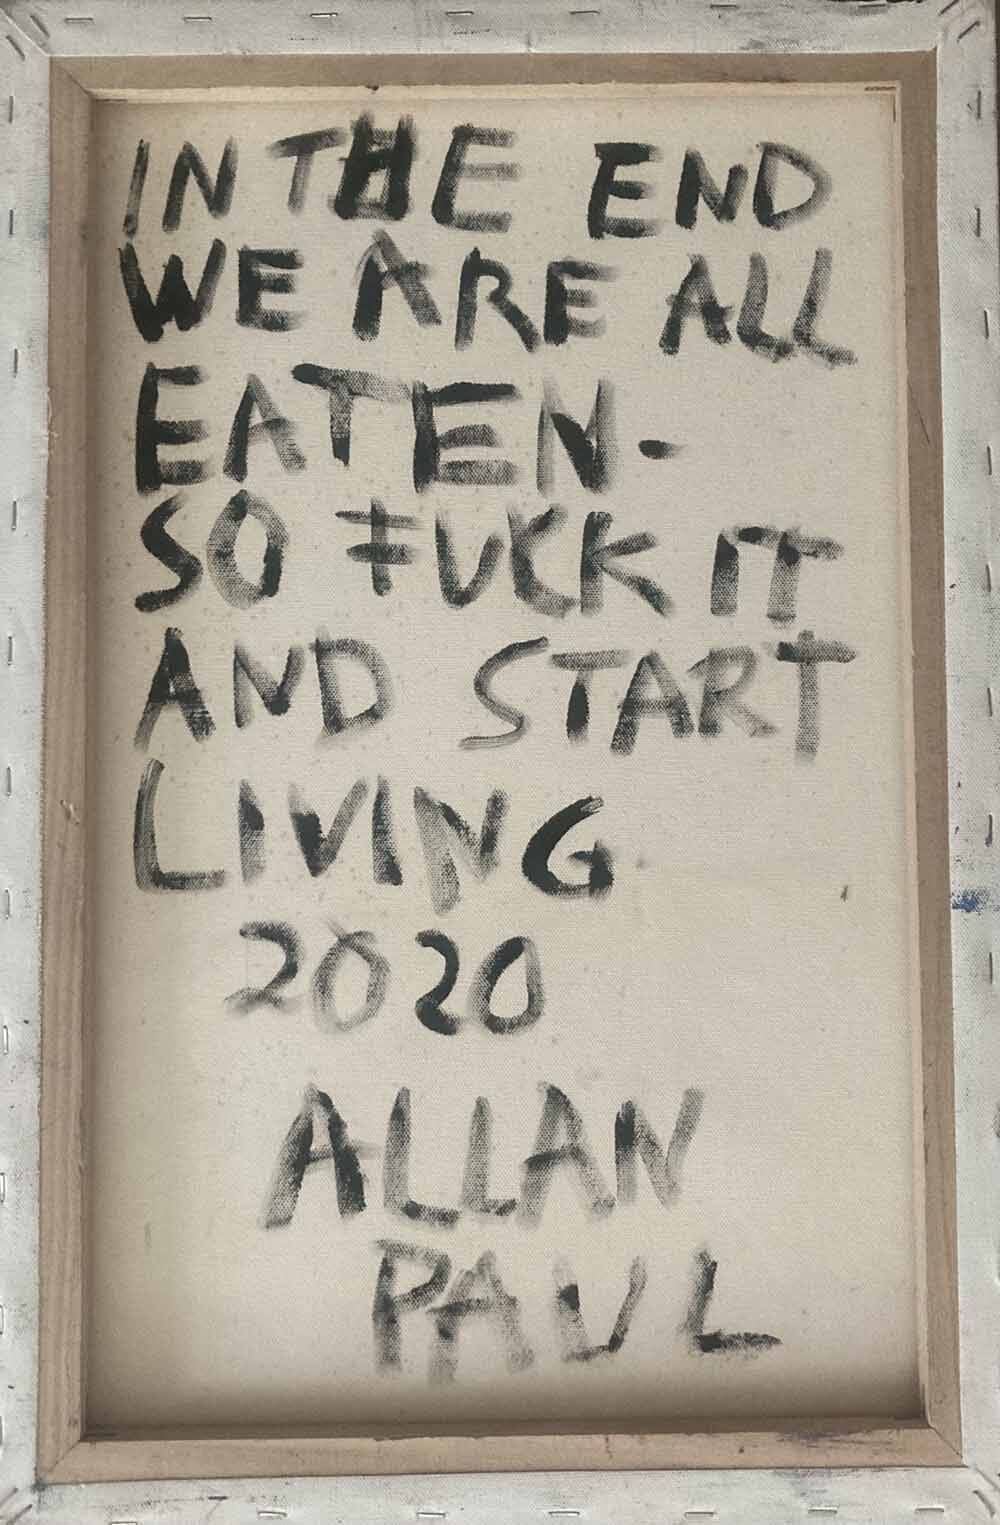 IN THE END
WE ARE ALL
EATEN-
SO FUCK IT
AND START
LIVING
2020
ALLAN
PAUL